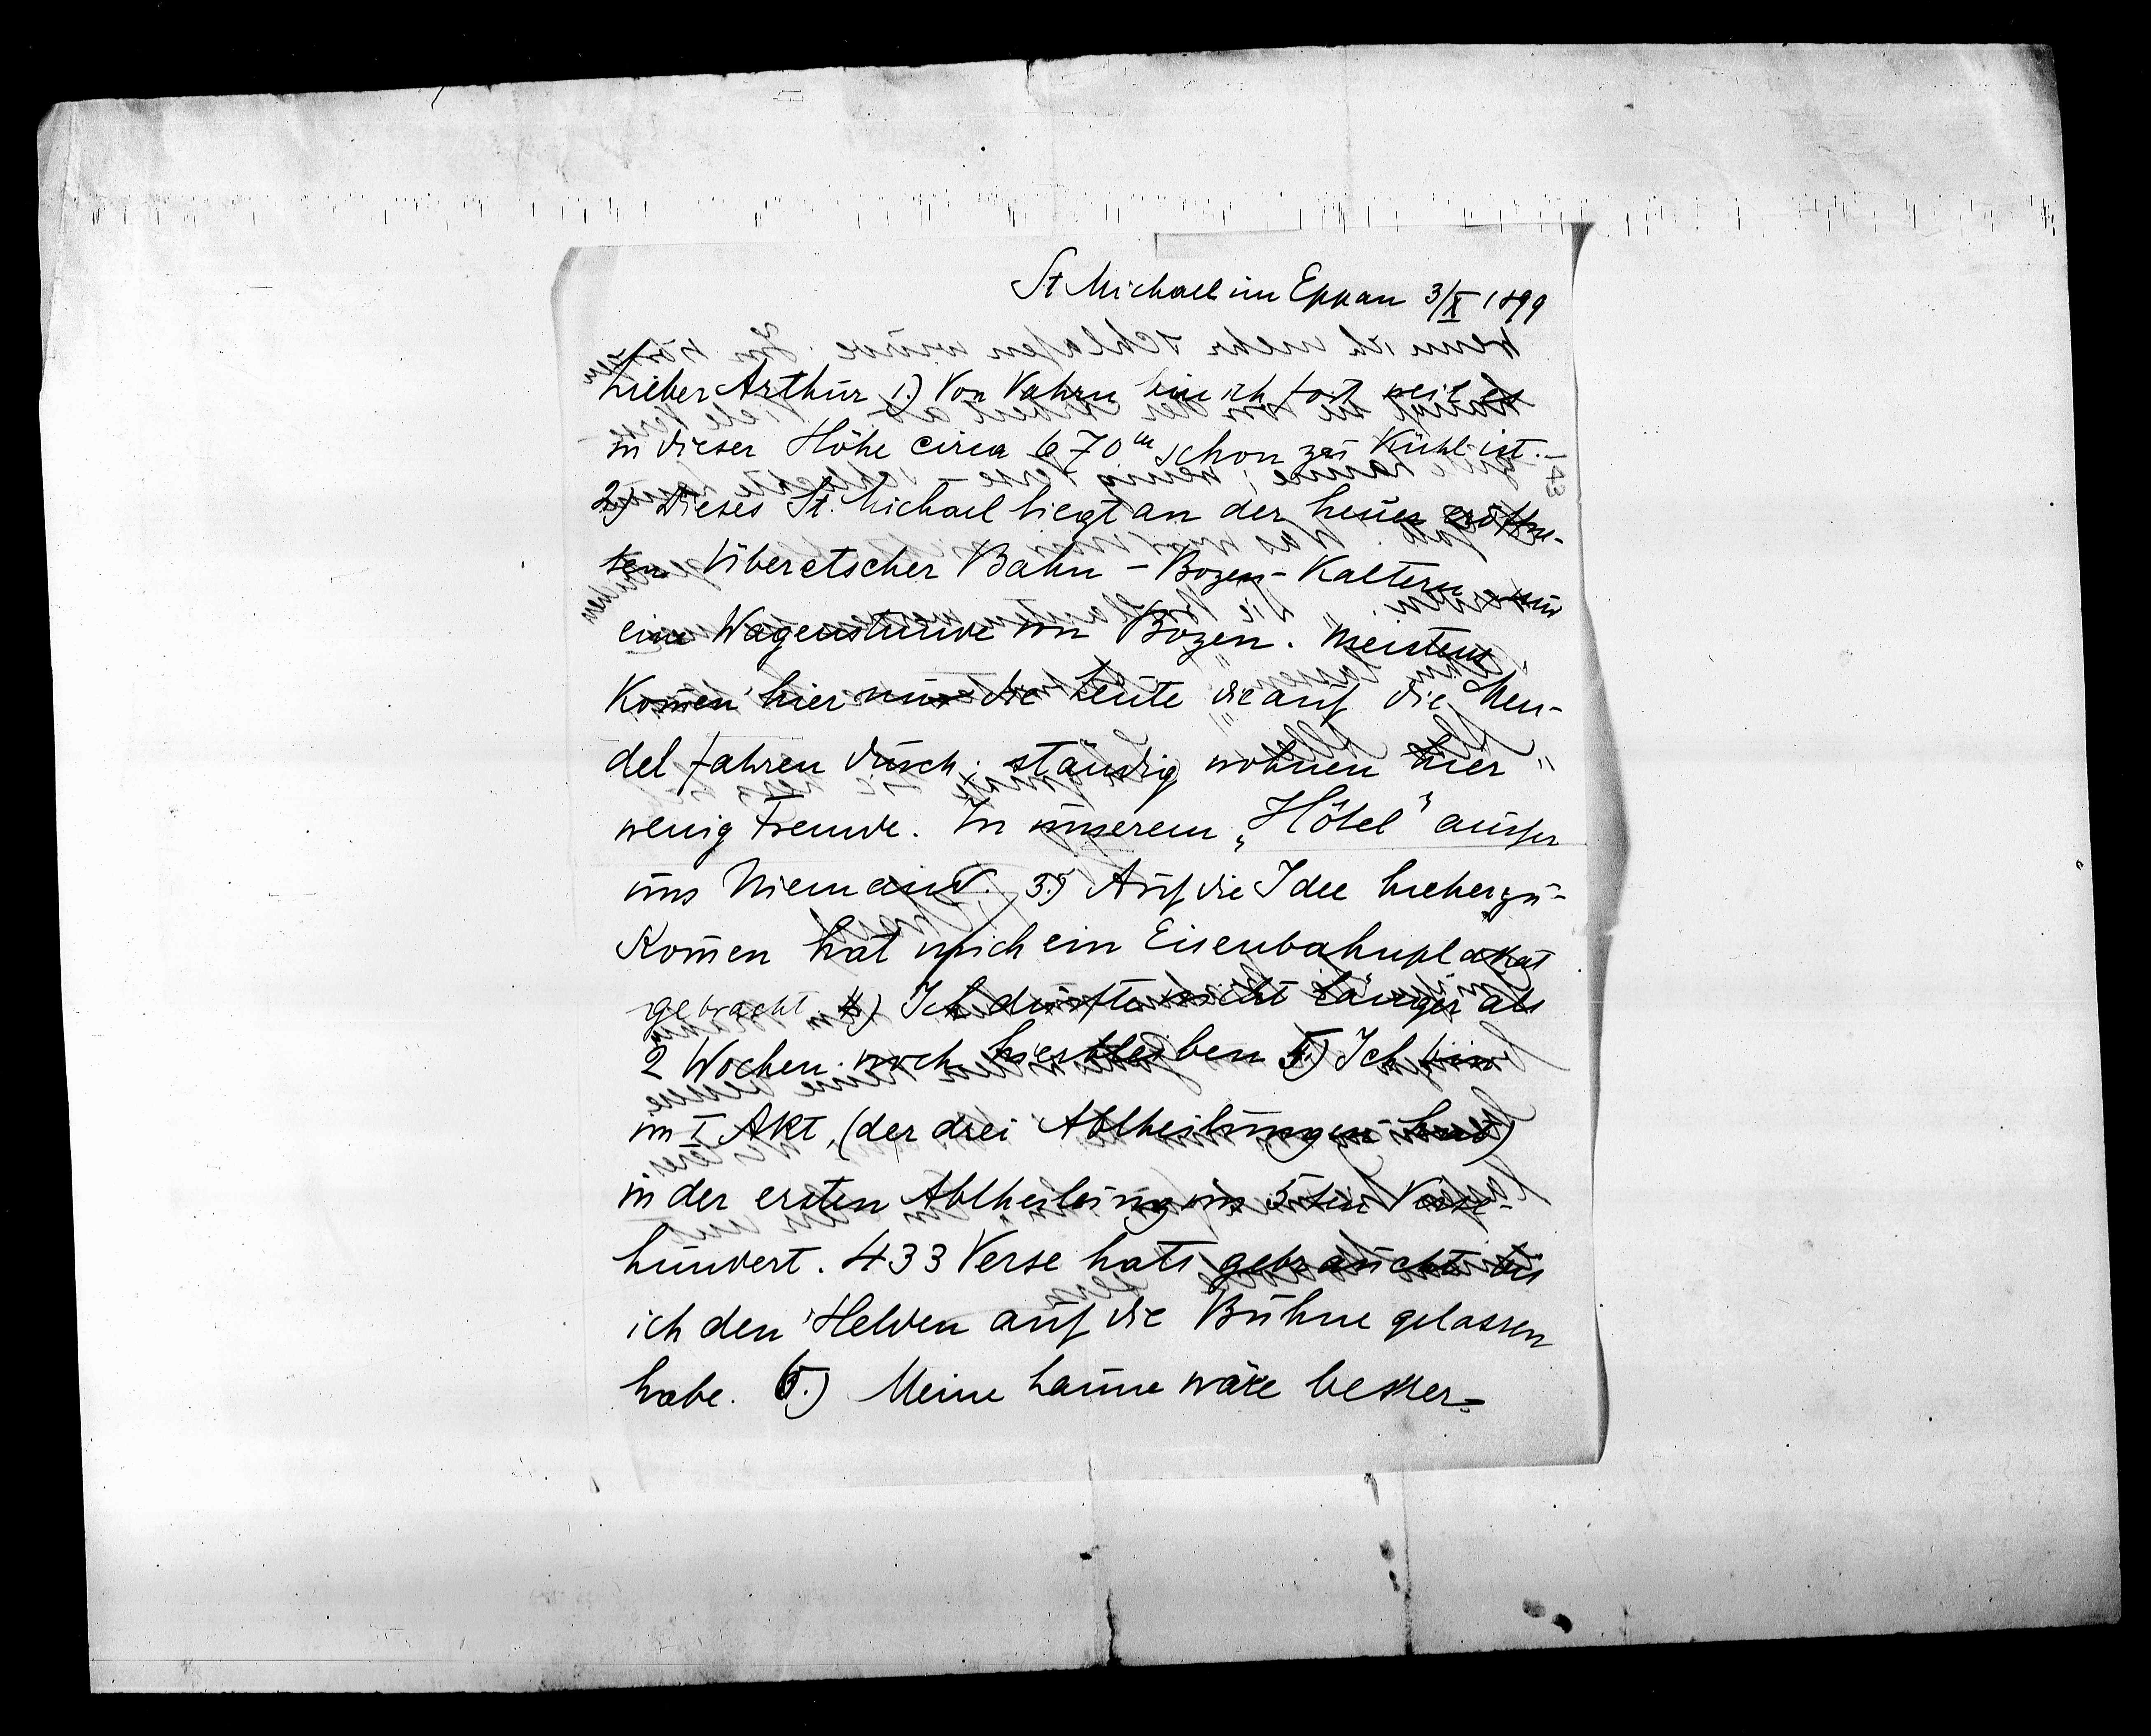 St Michael im Eppan 3/X 1899
Lieber Arthur 1.) Von Vahrn bin ich fort weil es
in dieser Höhe circa 670m schon zu Kühl ist. –
2) Dieses St. Michael liegt an der heuer eröffne-
ten Überetscher Bahn – Bozen – Kaltern nur
eine Wagenstunde von Bozen. Meistens
Kom̄en hier nur die Leute die auf die Men-
del fahren durch; ständig wohnen hier
wenig Fremde. In unserem „Hôtel" ausser
uns Niemand. 3.) Auf die Idee hieherzu-
Kom̄en hat mich ein Eisenbahnplakat
gebracht 4) Ich dürfte nicht länger als
2 Wochen noch hierbleiben 5.) Ich bin
im I Akt, (der drei Abtheilungen hat)
in der ersten Abtheilung im 5ten Vers-
hundert. 433 Verse hats gebraucht bis
ich den Helden auf die Bühne gelassen
habe. 6.) Meine Laune wäre besser –
43